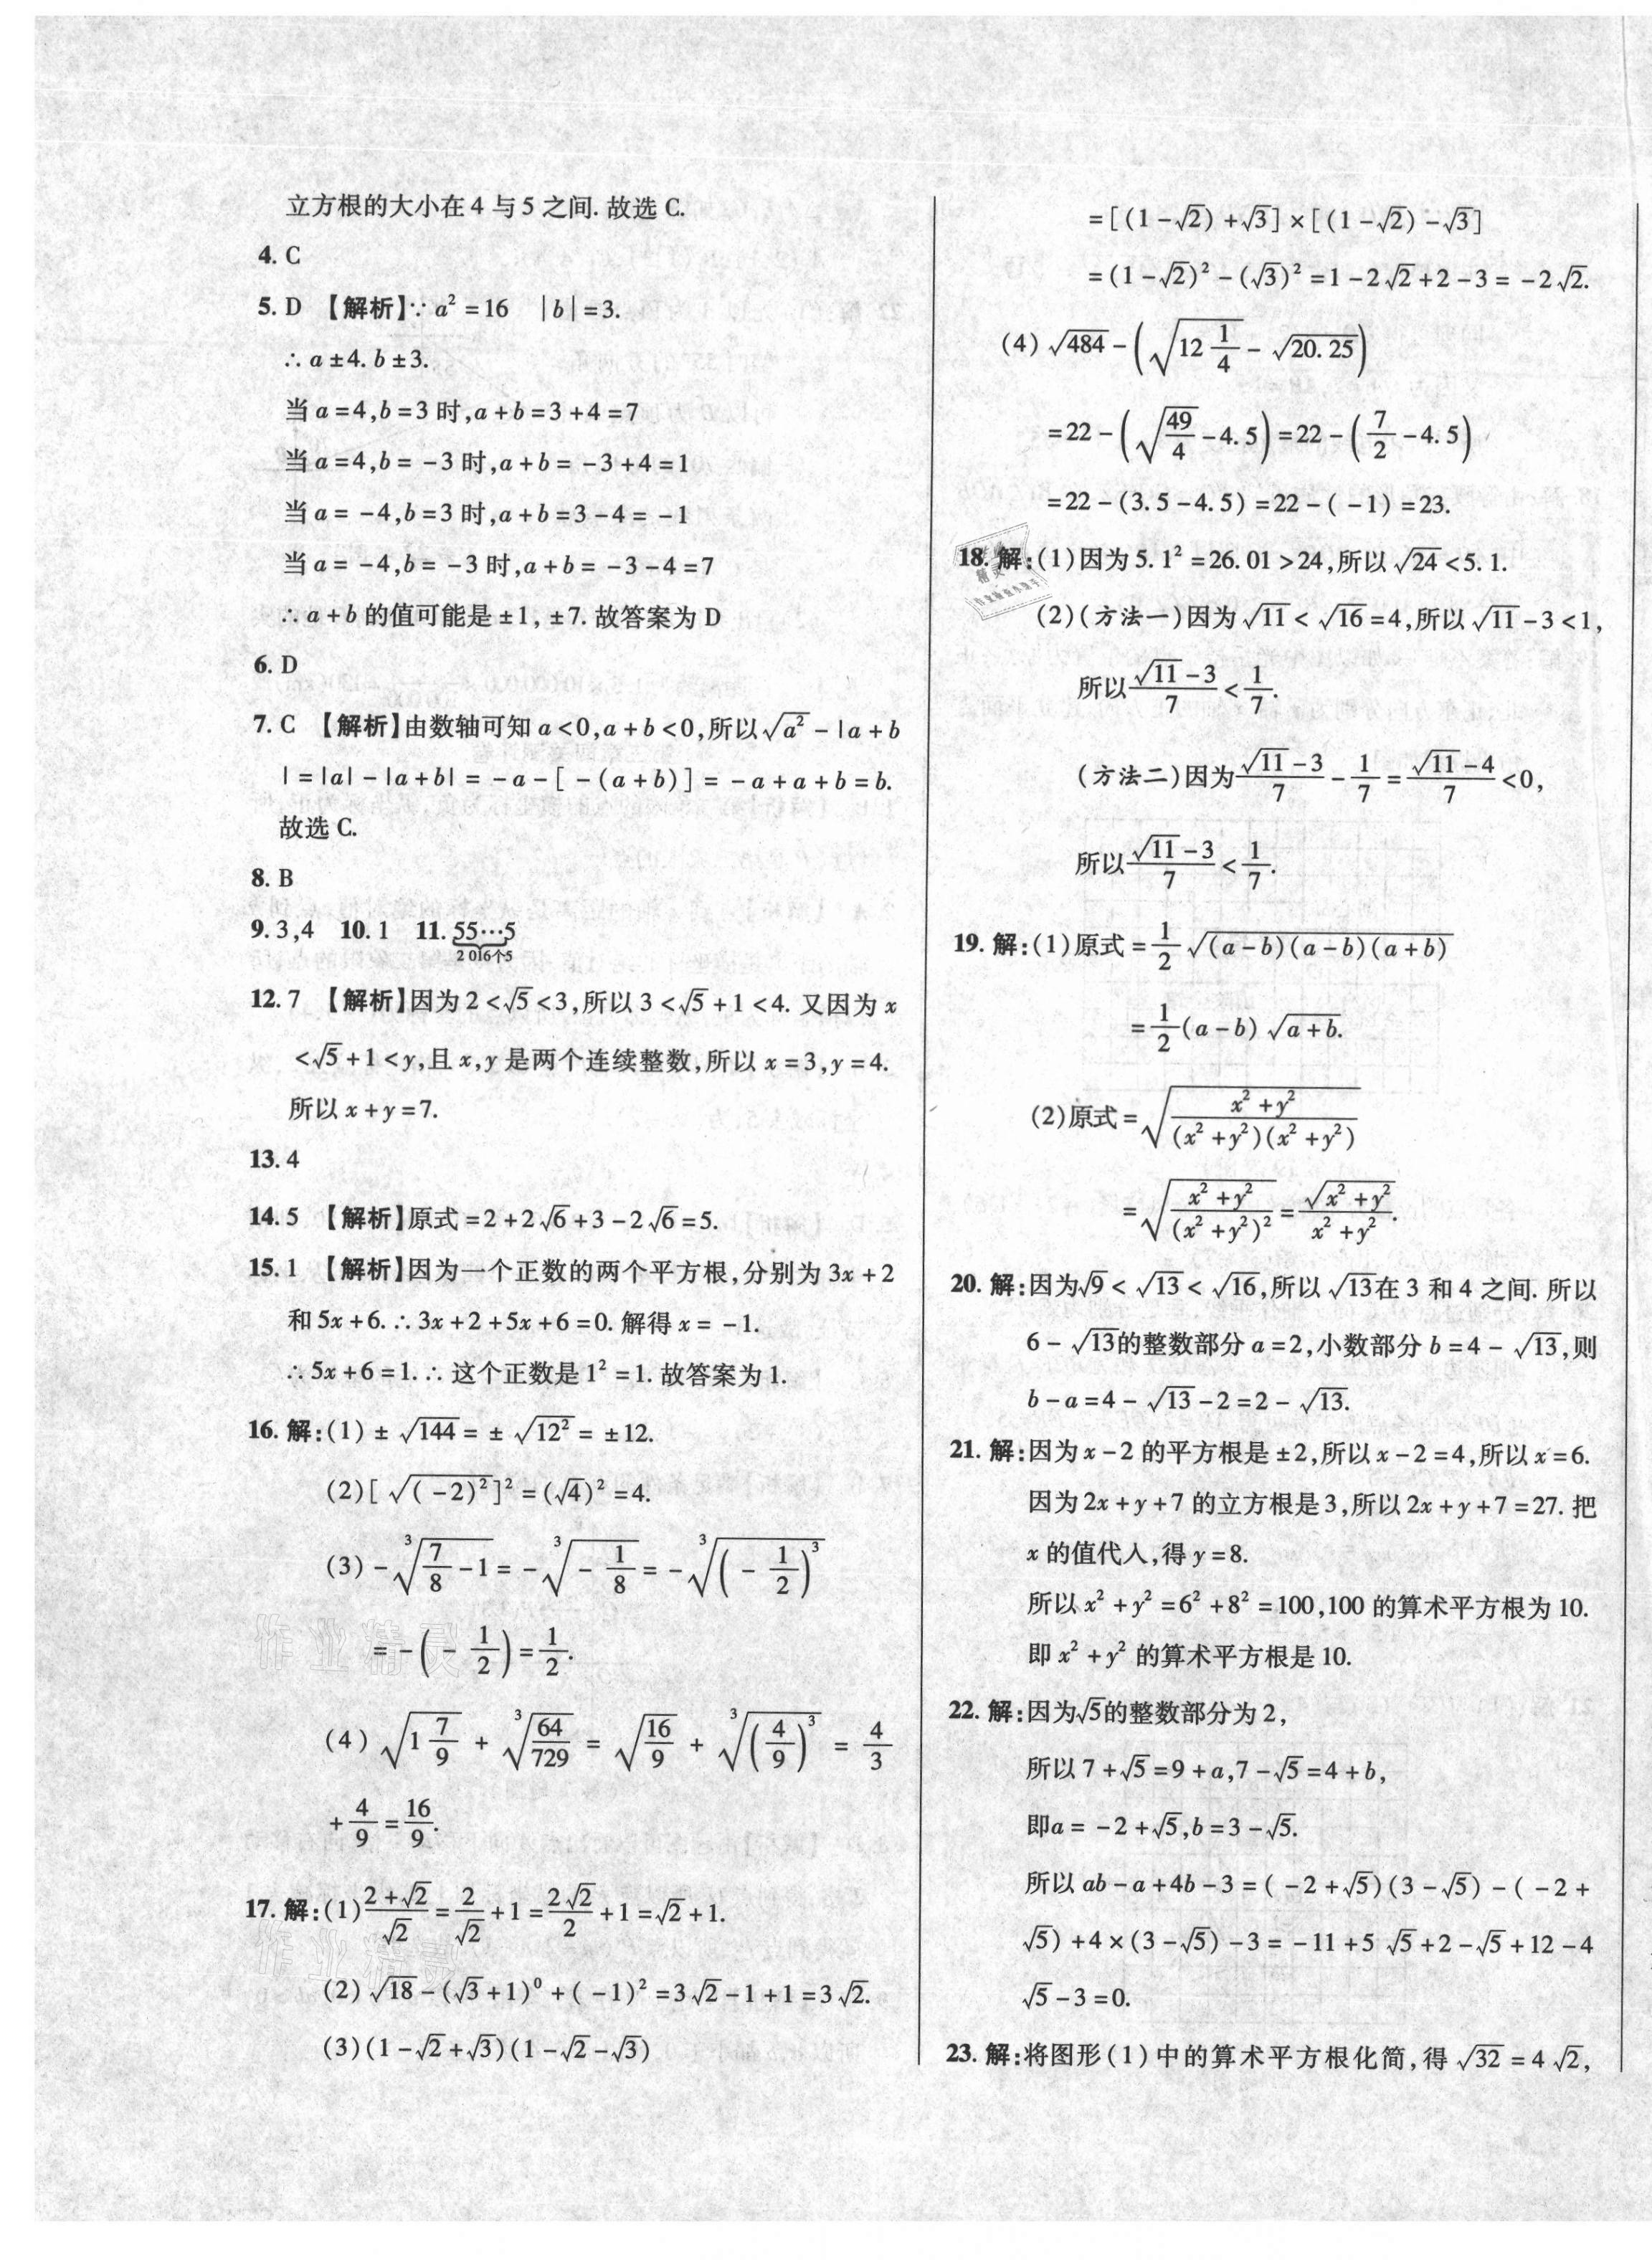 立方根的大小在4与5之间. 故选C.
4. C
5. D 【解析】∵ a²=16 |b|=3.
∴ a±4. b±3.
当a=4,b=3时,a+b=3+4=7
当a=4,b=-3时,a+b=-3+4=1
当a=-4,b=3时,a+b=3-4=-1
当a=-4,b=-3时,a+b=-3-4=7
∴ a+b的值可能是±1,±7. 故答案为D
6. D
7. C 【解析】由数轴可知a<0,a+b<0,所以√(a²)-|a+b
|=|a|-|a+b|=-a-[-(a+b)]=-a+a+b=b.
故选C.
8. B
9. 3,4 10. 1 11. 55⋯5
2 016个5
12. 7 【解析】因为2<√5<3,所以3<√5+1<4. 又因为x
<√5+1<y,且x,y是两个连续整数,所以x=3,y=4.
所以x+y=7.
13. 4
14. 5 【解析】原式=2+2√6+3-2√6=5.
15. 1 【解析】因为一个正数的两个平方根,分别为3x+2
和5x+6. ∴ 3x+2+5x+6=0. 解得x=-1.
∴ 5x+6=1. ∴ 这个正数是1²=1. 故答案为1.
16. 解:(1)±√144=±√(12²)=±12.
(2)[√((-2)²)]²=(√4)²=4.
(3)-∛(7/8-1)=-∛(-1/8)=-∛((-1/2)³)
=-(-1/2)=1/2.
(4)√(1 7/9)+∛(64/729)=√(16/9)+∛((4/9)³)=4/3
+4/9=16/9.
17. 解:(1)(2+√2)/√2=2/√2+1=2√2/2+1=√2+1.
(2)√18-(√3+1)⁰+(-1)²=3√2-1+1=3√2.
(3)(1-√2+√3)(1-√2-√3)
=[(1-√2)+√3]×[(1-√2)-√3]
=(1-√2)²-(√3)²=1-2√2+2-3=-2√2.
(4)√484-(√(12 1/4)-√20.25)
=22-(√(49/4)-4.5)=22-(7/2-4.5)
=22-(3.5-4.5)=22-(-1)=23.
18. 解:(1)因为5.1²=26.01>24,所以√24<5.1.
(2)(方法一)因为√11<√16=4,所以√11-3<1,
所以(√11-3)/7<1/7.
(方法二)因为(√11-3)/7-1/7=(√11-4)/7<0,
所以(√11-3)/7<1/7.
19. 解:(1)原式=1/2√((a-b)(a-b)(a+b))
=1/2(a-b)√(a+b).
(2)原式=√((x²+y²)/((x²+y²)(x²+y²)))
=√((x²+y²)/(x²+y²)²)=√(x²+y²)/(x²+y²).
20. 解:因为√9<√13<√16,所以√13在3和4之间. 所以
6-√13的整数部分a=2,小数部分b=4-√13,则
b-a=4-√13-2=2-√13.
21. 解:因为x-2的平方根是±2,所以x-2=4,所以x=6.
因为2x+y+7的立方根是3,所以2x+y+7=27. 把
x的值代人,得y=8.
所以x²+y²=6²+8²=100,100的算术平方根为10.
即x²+y²的算术平方根是10.
22. 解:因为√5的整数部分为2,
所以7+√5=9+a,7-√5=4+b,
即a=-2+√5,b=3-√5.
所以ab-a+4b-3=(-2+√5)(3-√5)-(-2+
√5)+4×(3-√5)-3=-11+5√5+2-√5+12-4
√5-3=0.
23. 解:将图形(1)中的算术平方根化简,得√32=4√2,
作业精灵
作业精灵